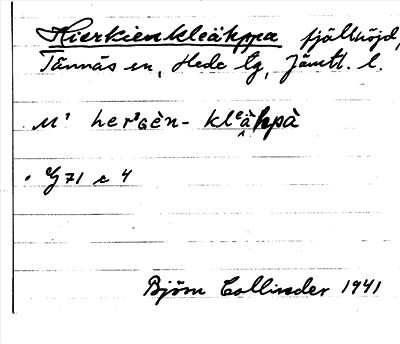 Hierkienkleähppa fjällhöjd,
Tännäs sn, Hede tg, Jämtl. l.
M¹ herᵊɢèn- kleähpà
G 71 c 4
Björn Collinder 1941